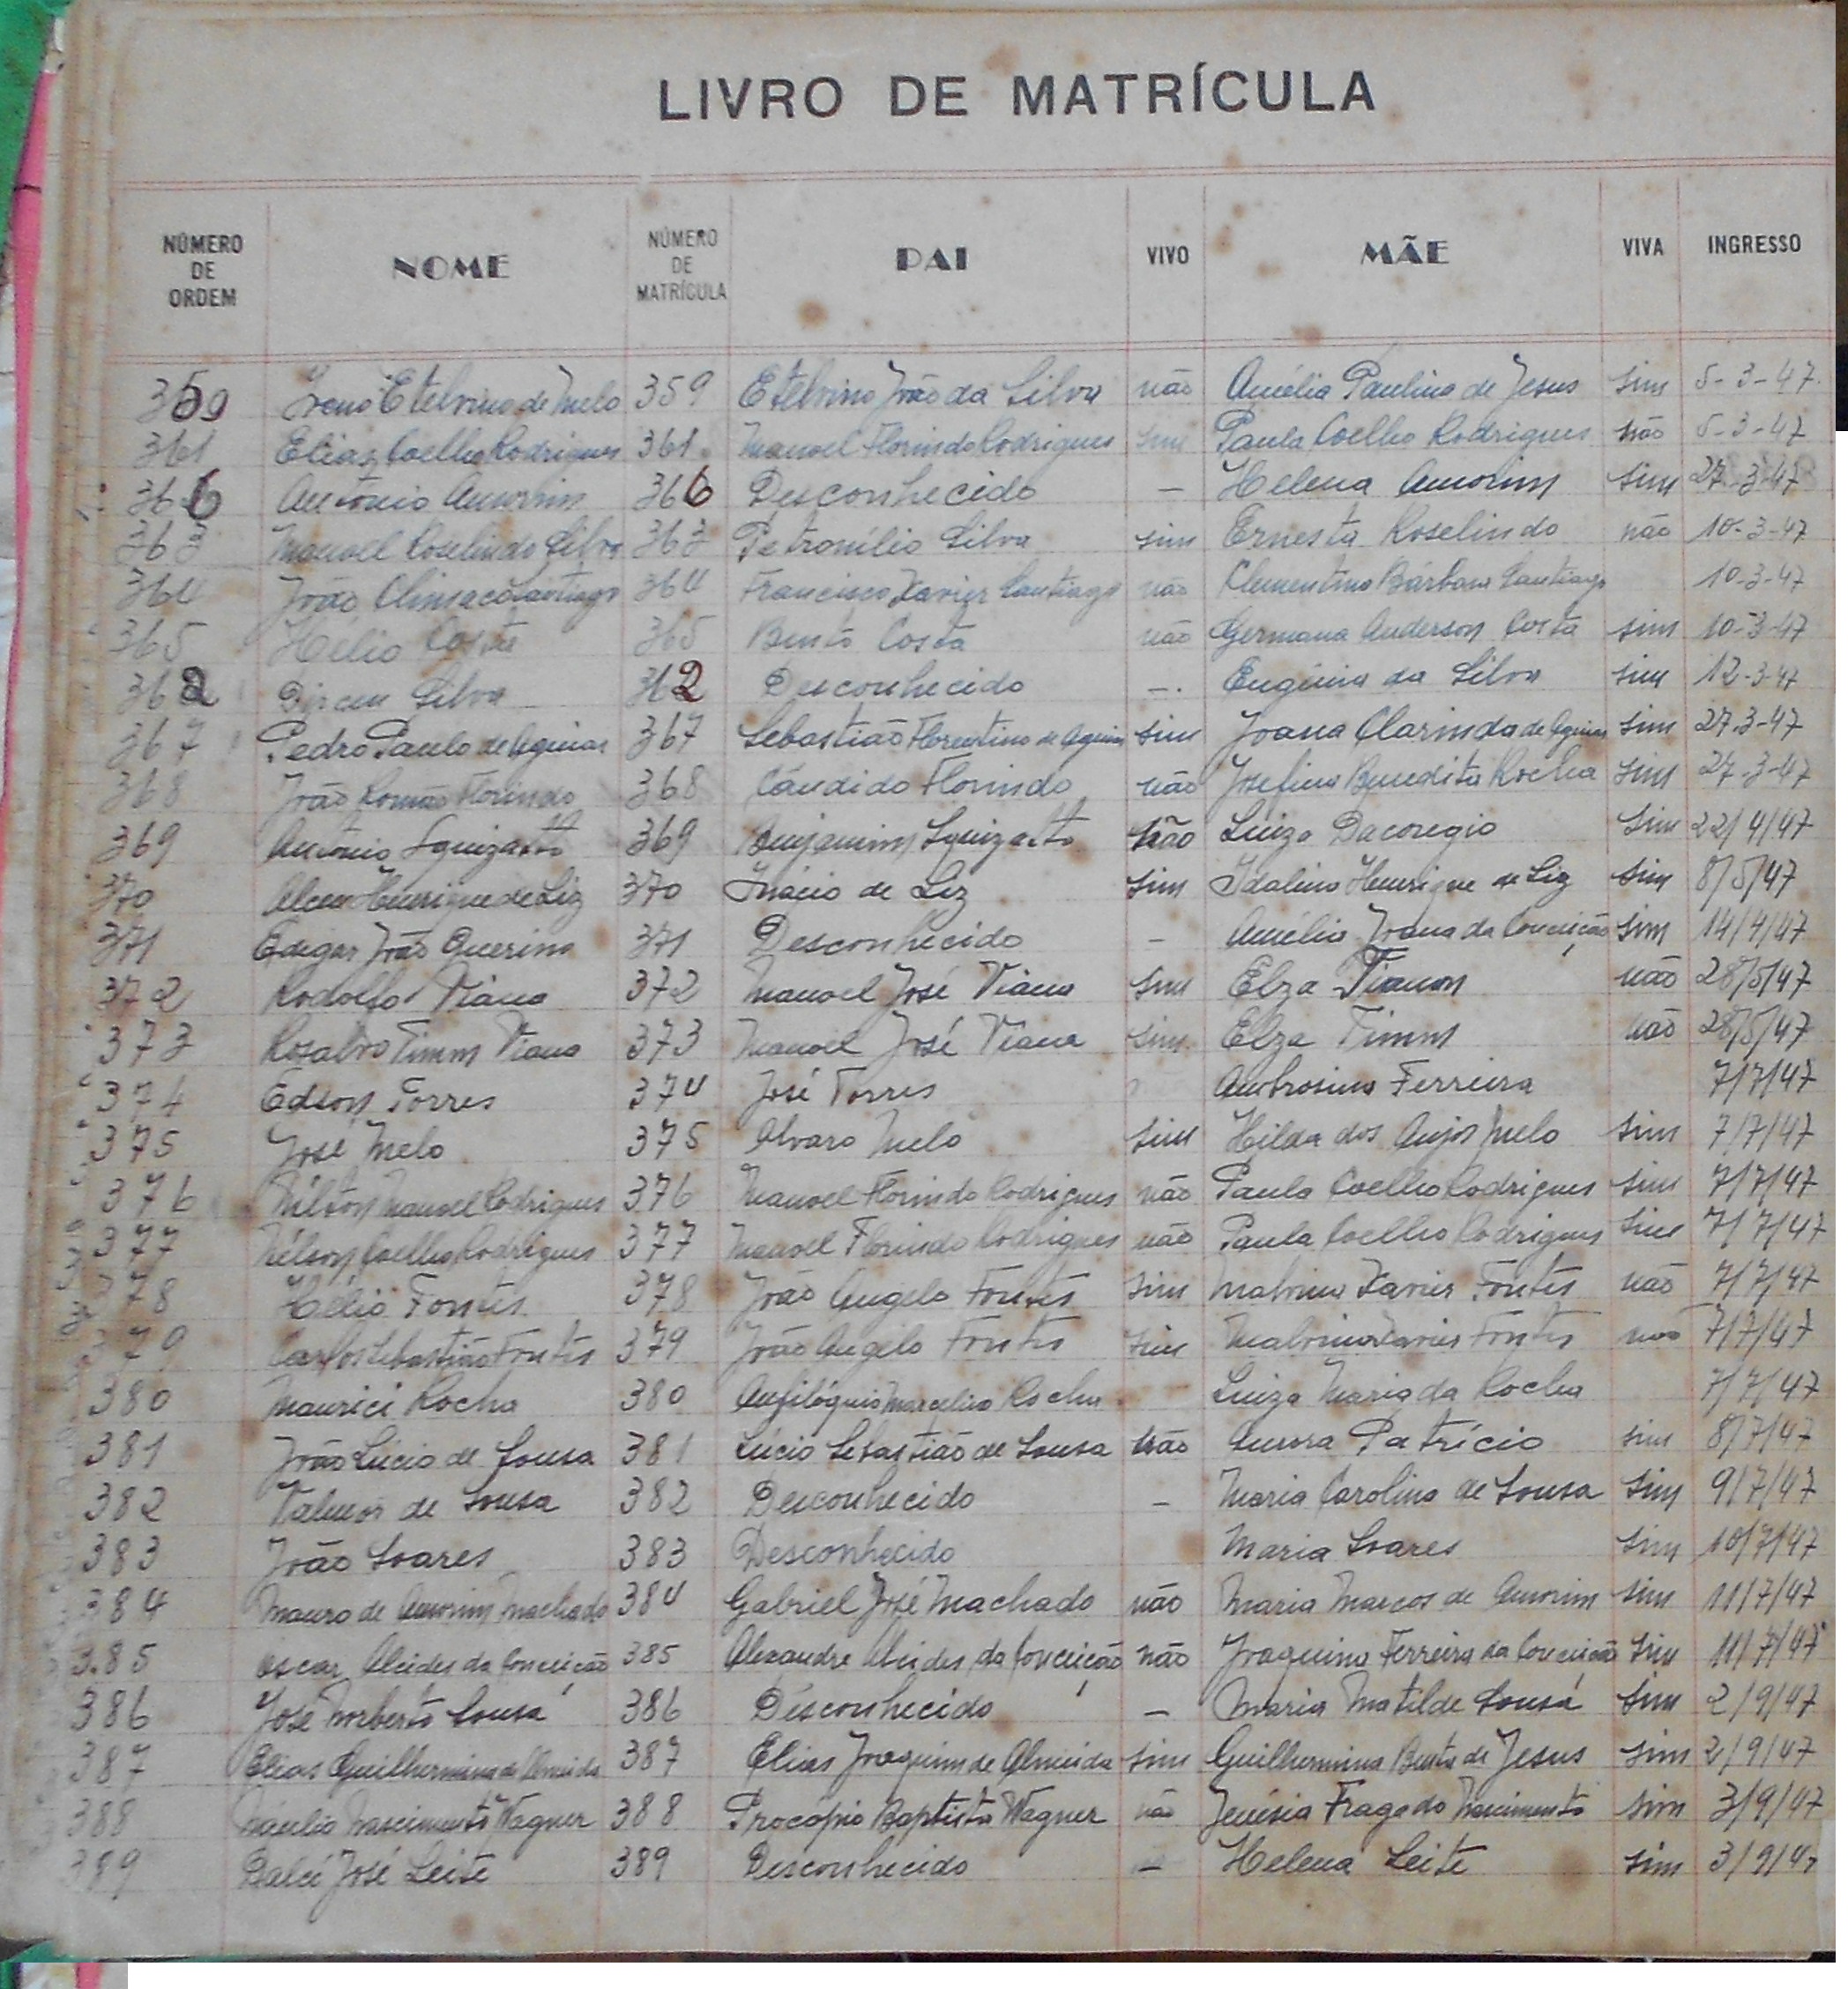 LIVRO DE MATRÍCULA
NÚMERO DE ORDEM NOME NÚMERO DE MATRÍCULA PAI VIVO MÃE VIVA INGRESSO
359 Etelvino de Melo 359 Etelvino João da Silva não Amélia Paulina de Jesus sim 5-3-47
361 Elias Coelho Rodrigues 361 Manoel Florindo Rodrigues sim Paula Coelho Rodrigues não 5-3-47
366 Antônio Amorim 366 Desconhecido — Helena Amorim sim 27-3-47
363 Manoel Roselindo Silva 363 Petronílio Silva sim Ernesta Roselindo não 10-3-47
364 João Climaco Santiago 364 Francisco Xavier Santiago não Clementina Bárbara Santiago 10-3-47
365 Hélio Costa 365 Bento Costa não Germana Anderson Costa sim 10-3-47
362 Dirceu Silva 362 Desconhecido — Eugênia da Silva sim 12-3-47
367 Pedro Paulo de Aguiar 367 Sebastião Florentino de Aguiar sim Joana Clarinda de Aguiar sim 27-3-47
368 João Romão Florindo 368 Cândido Florindo não Josefina Benedita Rocha sim 27-3-47
369 Antônio Squizatto 369 Benjamim Squizatto não Luiza Dacoregio sim 22/4/47
370 Alceu Henrique de Liz 370 Inácio de Liz sim Idalina Henrique de Liz sim 8/5/47
371 Edigar João Querino 371 Desconhecido — Amélia Joana da Conceição sim 14/4/47
372 Rodolfo Viana 372 Manoel José Viana sim Elza não 28/5/47
373 Rosalvo Timm Viana 373 Manoel José Viana sim Elza Timm não 28/5/47
374 Edson Torres 374 José Torres Ambrosina Ferreira 7/7/47
375 José Melo 375 Alvaro Melo sim Hilda dos Anjos Melo sim 7/7/47
376 Nilton Manoel Rodrigues 376 Manoel Florindo Rodrigues não Paula Coelho Rodrigues sim 7/7/47
377 Nélson Coelho Rodrigues 377 Manoel Florindo Rodrigues não Paula Coelho Rodrigues sim 7/7/47
378 Hélio Fontes 378 João Angelo Fontes sim Malvina Xavier Fontes não 7/7/47
379 Carlos Sebastião Fontes 379 João Angelo Fontes sim Malvina Xavier Fontes não 7/7/47
380 Maurici Rocha 380 Anfilóquio Marcelino Rocha Luiza Maria da Rocha 7/7/47
381 João Lúcio de Sousa 381 Lúcio Sebastião de Sousa não Aurora Patrício sim 8/7/47
382 Valmor de Sousa 382 Desconhecido — Maria Carolina de Sousa sim 9/7/47
383 João Soares 383 Desconhecido Maria Soares sim 10/7/47
384 Mauro de Amorim Machado 384 Gabriel José Machado não Maria Marcos de Amorim sim 11/7/47
385 Oscar Alcides da Conceição 385 Alexandre Alcides da Conceição não Joaquina Ferreira da Conceição sim 11/7/47
386 José Norberto Sousa 386 Desconhecido — Maria Matilde Sousa sim 2/9/47
387 Elias Guilhermino de Almeida 387 Elias Joaquim de Almeida sim Guilhermina Benta de Jesus sim 2/9/47
388 Nascimento Wagner 388 Procópio Baptista Wagner não Fraga do Nascimento sim 3/9/47
389 Dalci José Leite 389 Desconhecido — Helena Leite sim 3/9/47